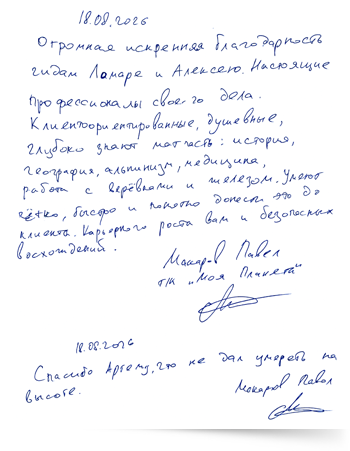 18.08.2026
Огромная искренняя благодарность
гидам Ламаре и Алексею. Настоящие
профессионалы своего дела.
Клиентоориентированные, душевные,
глубоко знают матчасть: история,
география, альпинизм, медицина,
работа с верёвками и железом. Умеют
чётко, быстро и понятно донести это до
клиента. Карьерного роста вам и безопасных
восхождений.
Макаров Павел
т/к „Моя Планета"
18.08.2026
Спасибо Артему, что не дал умереть на
высоте.
Макаров Павел